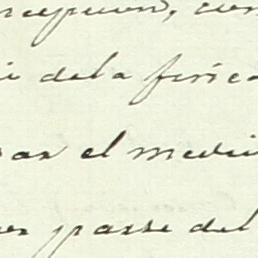 rcepcion, con
i dela fisica
ar el medi
parte del